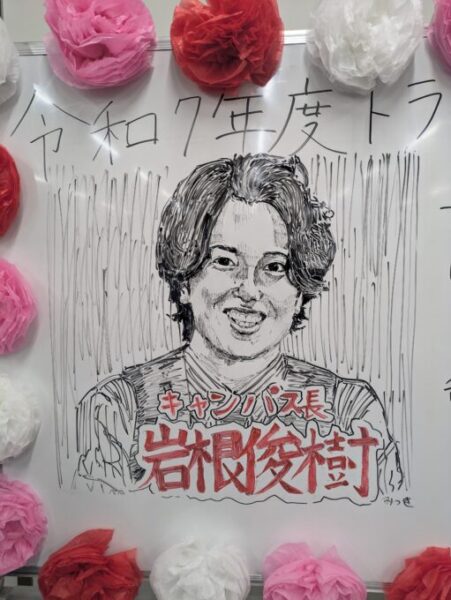 令和7年度トラ
キャンパス長
岩根俊樹
みつき